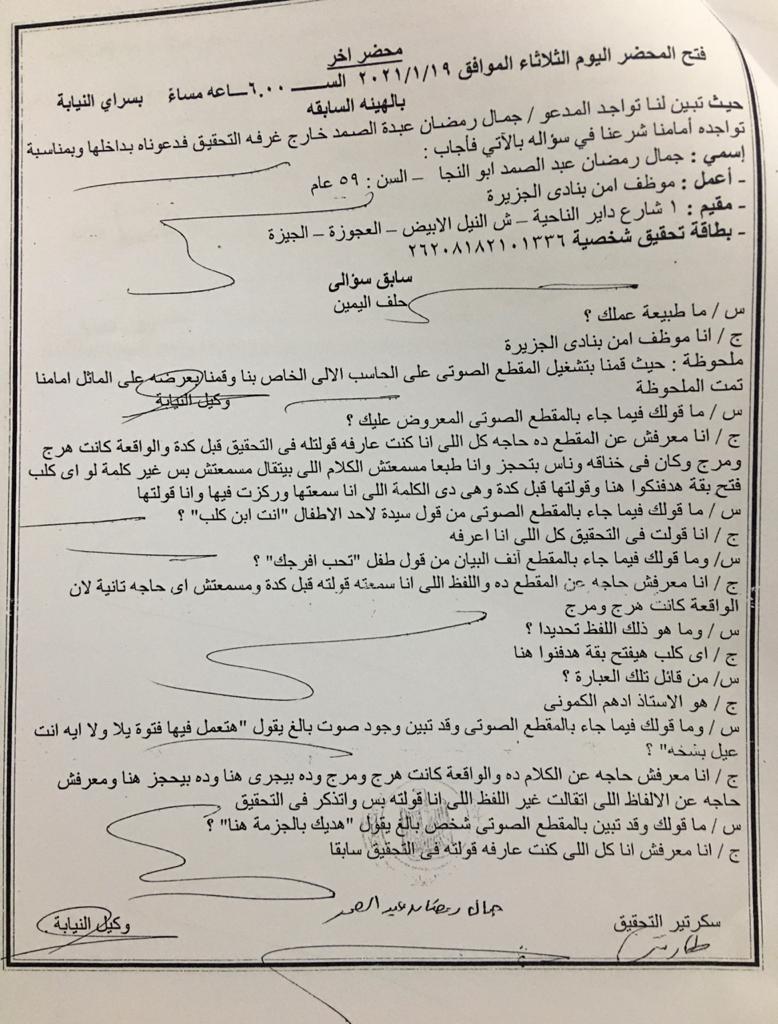 محضر اخر
فتح المحضر اليوم الثلاثاء الموافق ٢٠٢١/١/١٩ الســـــ ٦.٠٠ــاعه مساءً بسراي النيابة
بالهيئه السابقه
حيث تبين لنا تواجد المدعو / جمال رمضان عبدة الصمد خارج غرفه التحقيق فدعوناه بداخلها وبمناسبة
تواجده أمامنا شرعنا في سؤاله بالآتي فأجاب :
إسمي : جمال رمضان عبد الصمد ابو النجا – السن : ٥٩ عام
- أعمل : موظف امن بنادى الجزيرة
- مقيم : ١ شارع داير الناحية – ش النيل الابيض – العجوزة – الجيزة
- بطاقة تحقيق شخصية ٢٦٢٠٨١٨٢١٠١٣٣٦
سابق سؤالى
حلف اليمين
س / ما طبيعة عملك ؟
ج / انا موظف امن بنادى الجزيرة
ملحوظة : حيث قمنا بتشغيل المقطع الصوتى على الحاسب الالى الخاص بنا وقمنا بعرضه على الماثل امامنا
تمت الملحوظة
وكيل النيابة
س / ما قولك فيما جاء بالمقطع الصوتى المعروض عليك ؟
ج / انا معرفش عن المقطع ده حاجه كل اللى انا كنت عارفه قولتله فى التحقيق قبل كدة والواقعة كانت هرج
ومرج وكان فى خناقه وناس بتحجز وانا طبعا مسمعتش الكلام اللى بيتقال مسمعتش بس غير كلمة لو اى كلب
فتح بقة هدفنكوا هنا وقولتها قبل كدة وهى دى الكلمة اللى انا سمعتها وركزت فيها وانا قولتها
س / ما قولك فيما جاء بالمقطع الصوتى من قول سيدة لاحد الاطفال "انت ابن كلب" ؟
ج / انا قولت فى التحقيق كل اللى انا اعرفه
س/ وما قولك فيما جاء بالمقطع آنف البيان من قول طفل "تحب افرجك" ؟
ج / انا معرفش حاجه عن المقطع ده واللفظ اللى انا سمعته قولته قبل كدة ومسمعتش اى حاجه تانية لان
الواقعة كانت هرج ومرج
س / وما هو ذلك اللفظ تحديدا ؟
ج / اى كلب هيفتح بقة هدفنوا هنا
س/ من قائل تلك العبارة ؟
ج / هو الاستاذ ادهم الكمونى
س / وما قولك فيما جاء بالمقطع الصوتى وقد تبين وجود صوت بالغ يقول "هتعمل فيها فتوة يلا ولا ايه انت
عيل بشخه" ؟
ج / انا معرفش حاجه عن الكلام ده والواقعة كانت هرج ومرج وده بيجرى هنا وده بيحجز هنا ومعرفش
حاجه عن الالفاظ اللى اتقالت غير اللفظ اللى انا قولته بس واتذكر فى التحقيق
س / ما قولك وقد تبين بالمقطع الصوتى شخص بالغ يقول "هديك بالجزمة هنا" ؟
ج / انا معرفش انا كل اللى كنت عارفه قولته فى التحقيق سابقا
جمال رمضان عبد الصمد
سكرتير التحقيق
وكيل النيابة